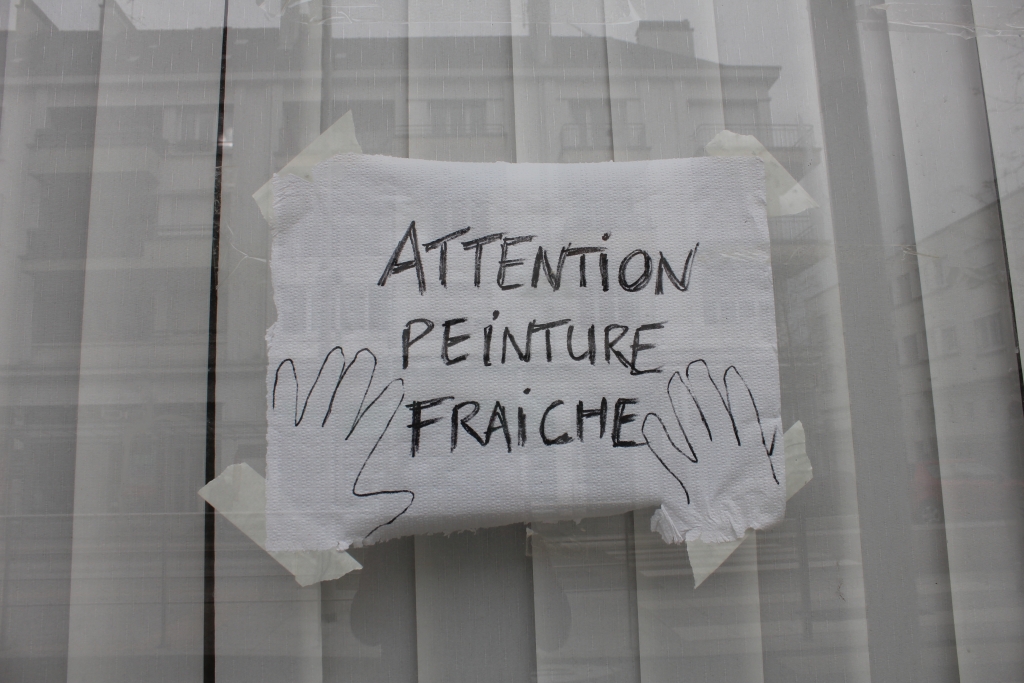 ATTENTiON
PEiNTURE
FRAiCHE